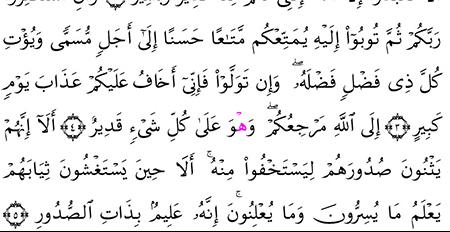 رَبَّكُمْ ثُمَّ تُوبُوٓا۟ إِلَيْهِ يُمَتِّعْكُم مَّتَٰعًا حَسَنًا إِلَىٰٓ أَجَلٍ مُّسَمًّى وَيُؤْتِ
كُلَّ ذِى فَضْلٍ فَضْلَهُۥ ۖ وَإِن تَوَلَّوْا۟ فَإِنِّىٓ أَخَافُ عَلَيْكُمْ عَذَابَ يَوْمٍ
كَبِيرٍ ﴿٣﴾ إِلَى ٱللَّهِ مَرْجِعُكُمْ ۖ وَهُوَ عَلَىٰ كُلِّ شَىْءٍ قَدِيرٌ ﴿٤﴾ أَلَآ إِنَّهُمْ
يَثْنُونَ صُدُورَهُمْ لِيَسْتَخْفُوا۟ مِنْهُ ۚ أَلَا حِينَ يَسْتَغْشُونَ ثِيَابَهُمْ
يَعْلَمُ مَا يُسِرُّونَ وَمَا يُعْلِنُونَ ۚ إِنَّهُۥ عَلِيمٌۢ بِذَاتِ ٱلصُّدُورِ ﴿٥﴾